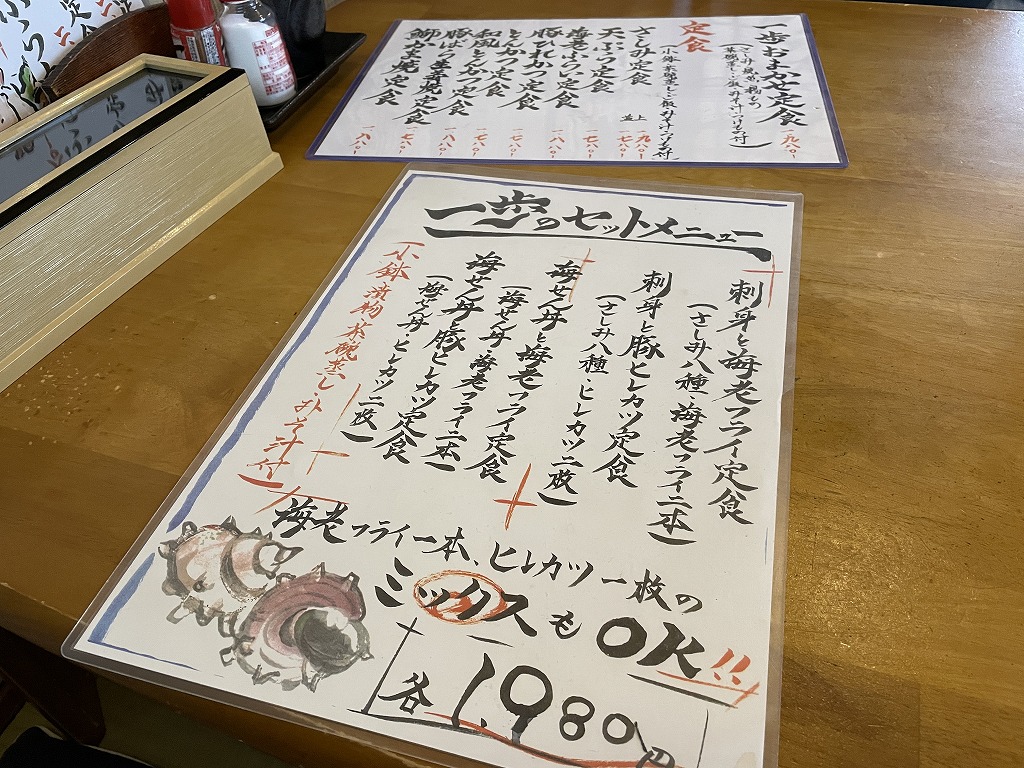 一歩のセットメニュー
刺身と海老フライ定食
(さしみ八種・海老フライ二本)
刺身と豚ヒレカツ定食
(さしみ八種・ヒレカツ二枚)
海せん丼と海老フライ定食
(海せん丼・海老フライ二本)
海せん丼と豚ヒレカツ定食
(海せん丼・ヒレカツ二枚)
(小鉢・漬物・茶碗蒸し・みそ汁付)
海老フライ一本、ヒレカツ一枚の
ミックスもOK!!
各1,980円
一歩おまかせ定食
一九八〇
定食
(小鉢・茶碗蒸し・ご飯・みそ汁・つけもの付)
さしみ定食
上 一九八〇
並 一六八〇
天ぷら定食
海老ふらい定食
豚ひれかつ定食
とんかつ定食
和風とんかつ定食
豚ばら生姜焼定食
鰤かま焼定食